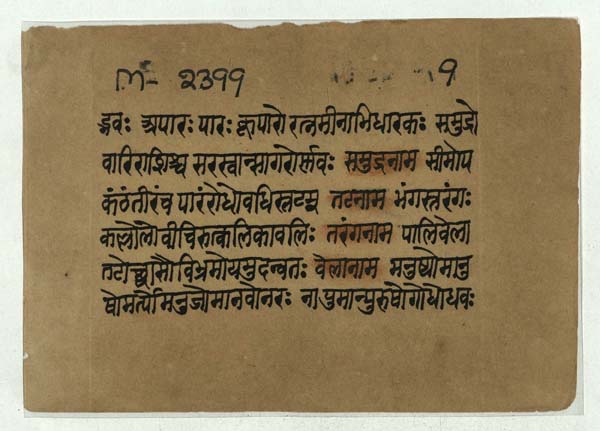 M- 2399 9
द्भवः अपारः पारः कूपारो रत्नमीनाभिधारकः समुद्रो
वारिराशिश्च सरस्वान्सागरोर्स्मवः समुद्रनाम सीमोप
कंठंतीरंच पारंरोधोवधिस्तटस्च तटनाम भंगस्तरंगः
कल्लोलो वीचिरुत्कलिकावलिः तरंगनाम पालिवेला
तटोच्छ्वासौविभ्रमोयमुदन्वतः वेलानाम मनुष्योमानु
षोमर्त्योमनुजोमानवोनरः नापुमान्पुरुषोगोधोधवः